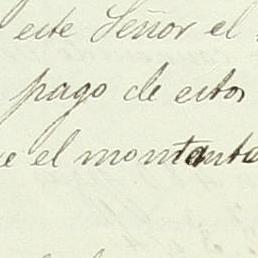 este Señor el
pago de estos
e el montante